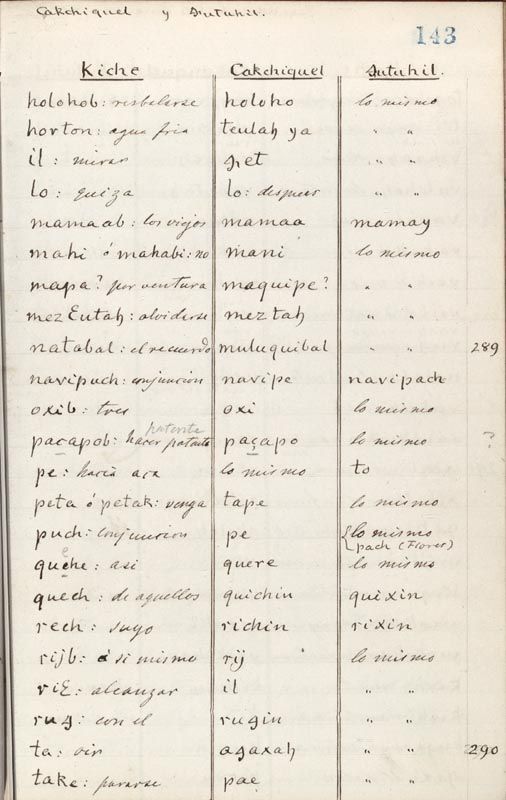 Cakchiquel y Sutuhil.
143
Kiche Cakchiquel Sutuhil.
holohob: resbelarse holoho lo mismo
horton: agua fria teulah ya " "
il: mirar " "
lo: quiza lo: despues " "
mamaab: los viejos mamaa mamay
mahi ó mahabi: no mani lo mismo
mapa? por ventura maquipe? " "
mezEutah: olvidarse meztah " "
natabal: el recuerdo muluquibal " " 289
navipuch: conjuncion navipe navipach
oxib: tres oxi lo mismo
patente
paçapob: hacer patente paçapo lo mismo ?
pe: hacia aca lo mismo to
peta ó petak: venga tape lo mismo
puch: conjuncion pe { lo mismo
pach (Flores)
e
quehe: asi quere lo mismo
quech: de aquellos quichin quixin
rech: suyo richin rixin
rijb: á si mismo rij lo mismo
riE: alcanzar il " "
rug: con el rugin " "
ta: oir agaxah " " 290
take: pararse pae " "